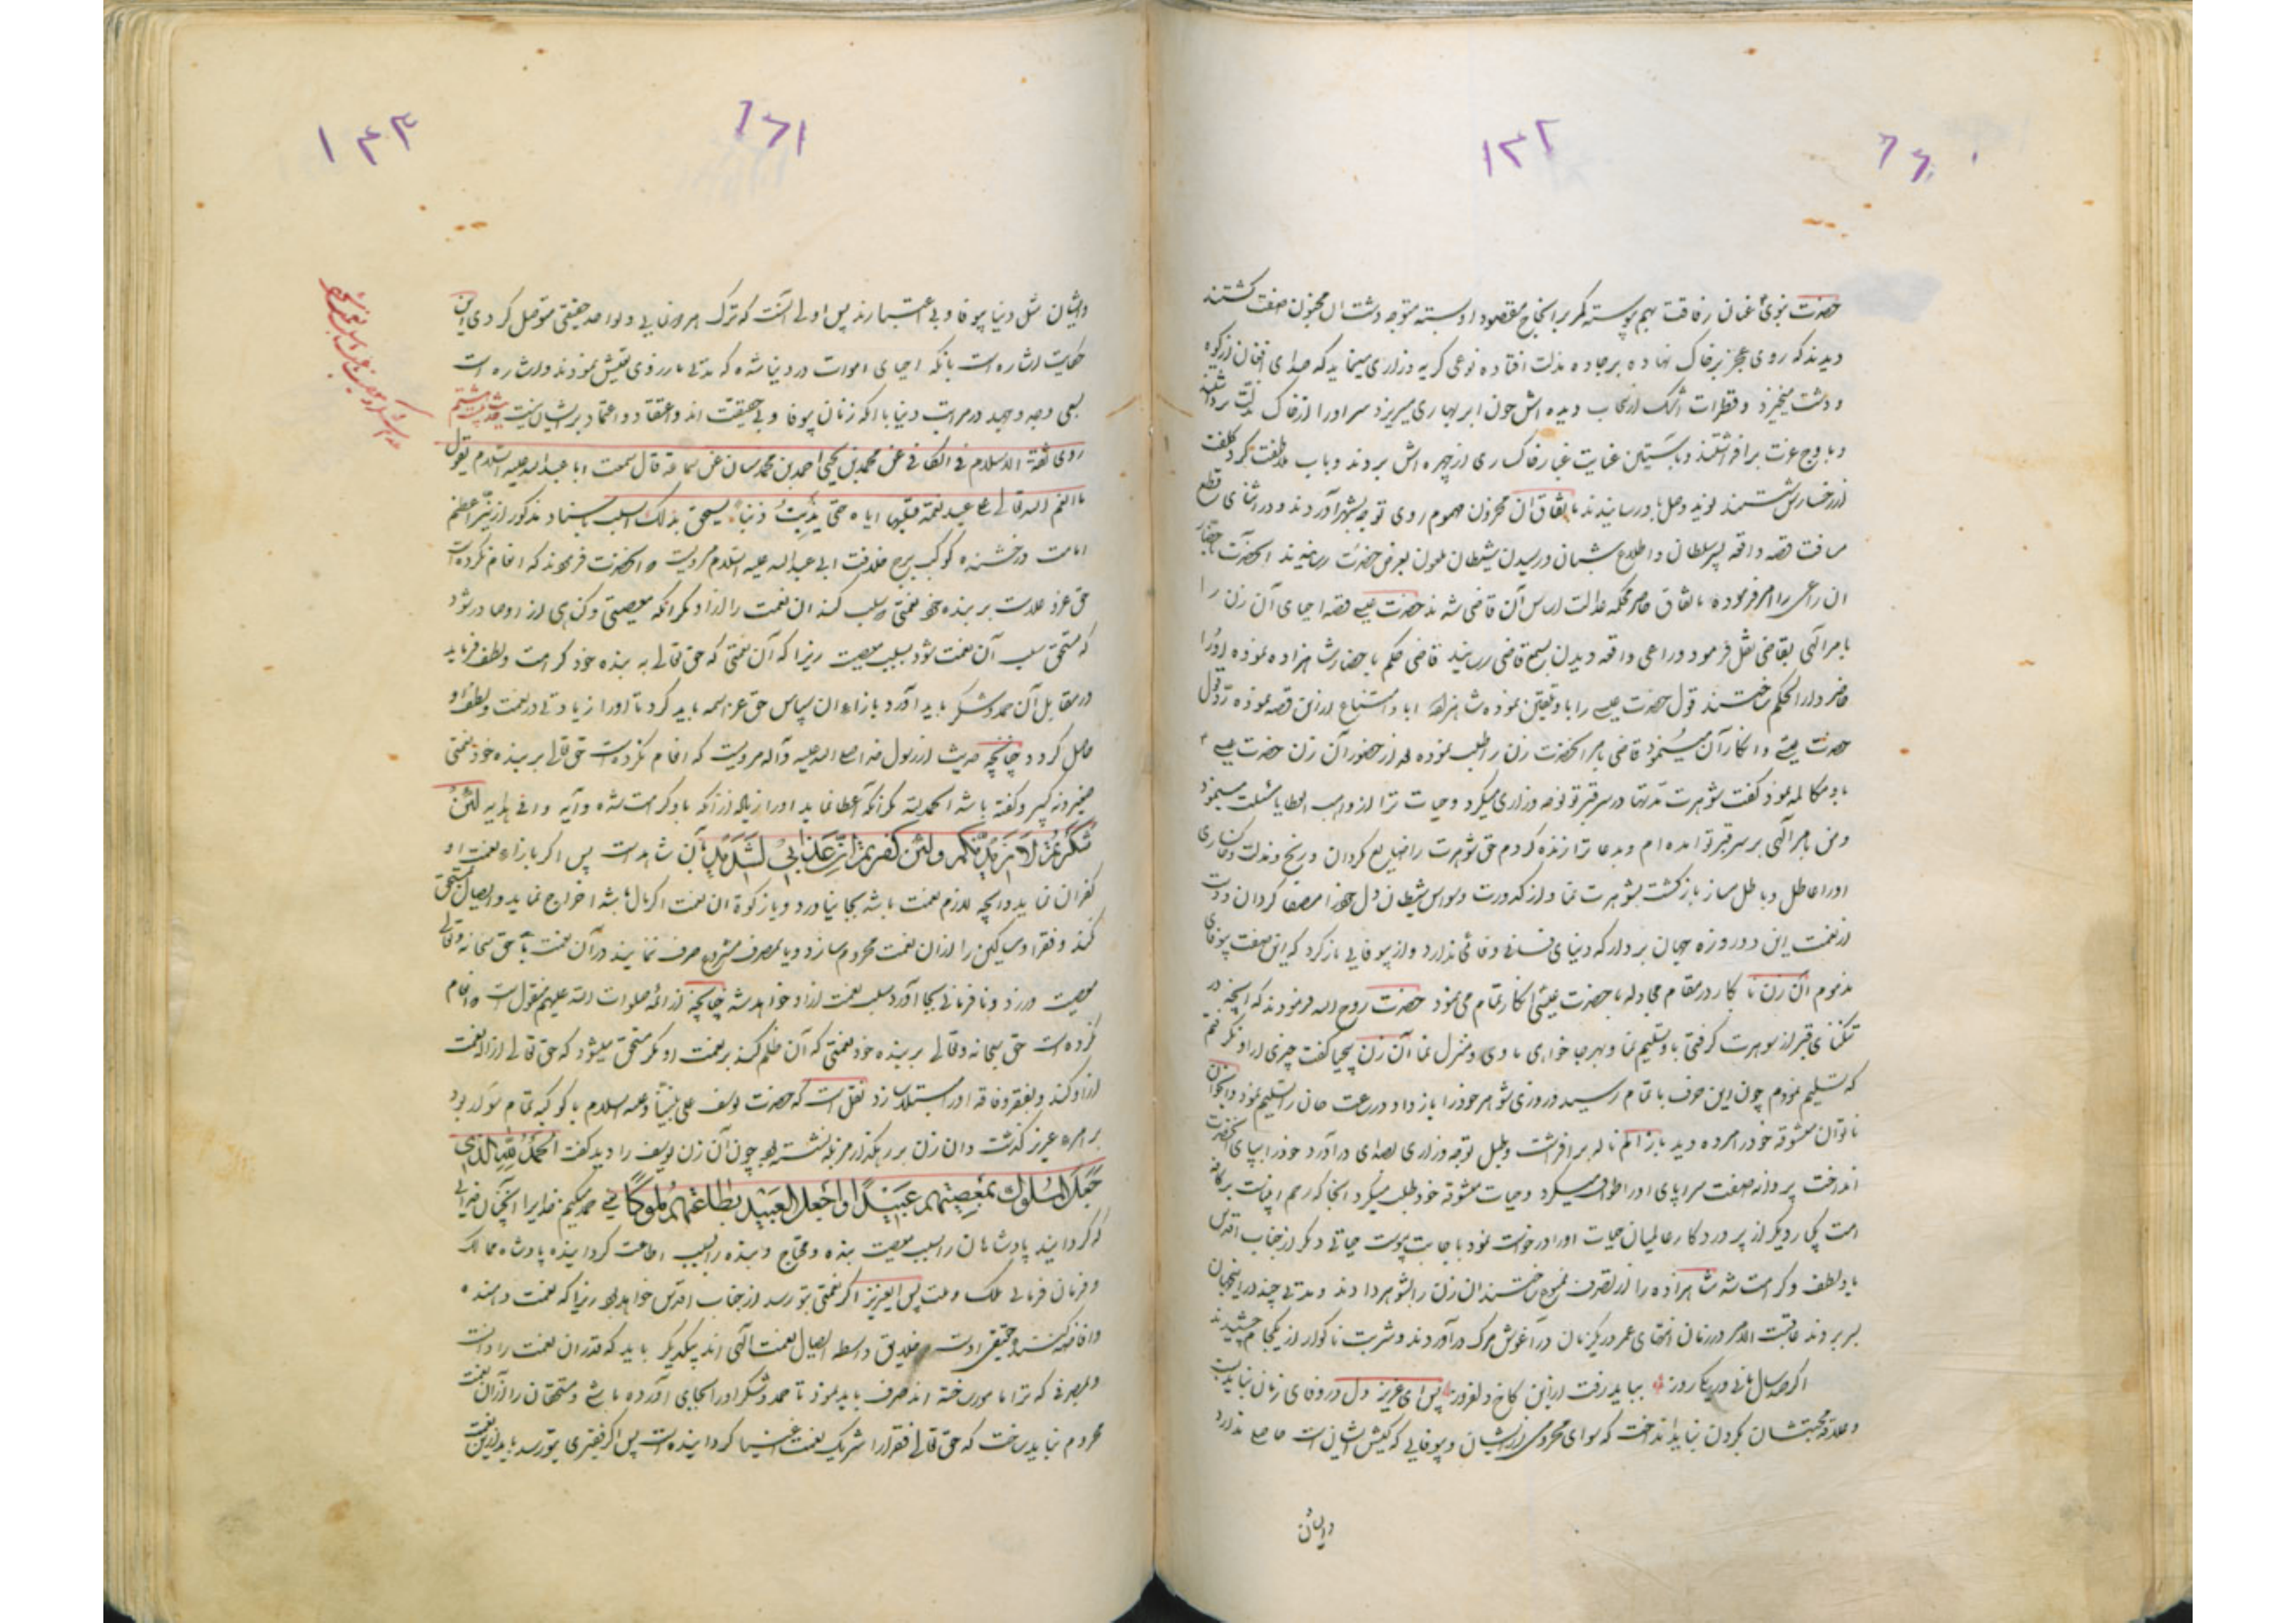 ۱۳۲
حضرت نبوی عنان رفاقت بهم پیوسته کمر بر انجاح مقصود او بسته متوجه دشت آن مجنون صفت گشتند
دیدند که روی عجز بر خاک نهاده بر جاده مذلت افتاده نوعی گریه و زاری مینماید که صدای افغان از کوه
و دشت میخیزد و قطرات اشک از دیده اش چون ابر بهاری میریزد سر او را از خاک مذلت برداشتند
و باوج عزت برافراشتند و بآستین عنایت غبار خاکساری از چهره اش بردند و بآب ملاطفت گرد کلفت
از رخسارش شستند باتفاق آن محزون مهموم روی توجه بشهر آوردند و در اثنای قطع
مسافت قصه واقعه پسر سلطان و اطلاع شبان و رسیدن شیطان ملعون بعرض حضرت رسانیدند آنحضرت
آن راعی را امر فرموده باتفاق حاضر محکمه عدالت اساس آن قاضی شدند حضرت عیسی قصه احیای آن زن را
بامر الهی بقاضی نقل فرمود و راعی واقعه دیدن بسمع قاضی رسانید قاضی حکم باحضار شاهزاده نموده او را
حاضر دار الحکم ساختند قول حضرت عیسی را باو تلقین نموده شاهزاده ابا و امتناع ازین قصه نموده رد قول
حضرت عیسی و انکار آن مینمود قاضی بامر آنحضرت زن را طلب نموده بعد از حضور آن زن حضرت عیسی
باو مکالمه نمود گفت شوهرت مدتها در سر قبر تو نوحه و زاری میکرد و حیات ترا از واهب العطایا مسئلت مینمود
و من بامر الهی بر سر قبر تو آمده ام و بدعا ترا زنده کردم حق شوهرت را ضایع مگردان و رنج و مذلت و خاکساری
او را عاطل و باطل مساز بازگشت بشوهرت نما و از کدورت وسواس شیطان دل خود را مصفا گردان و دست
از نعمت این دو روزه جهان بردار که دنیای فانی وفائی ندارد و از بیوفایی بازگرد که این صفت بیوفای
مذموم آن زن نابکار در مقام مجادله با حضرت عیسی انکار تمام می نمود حضرت روح الله فرمودند که آنچه در
تنگنای قبر از شوهرت گرفتی باو تسلیم نما و بهر جا خواهی ماوی و منزل نما آن زن بیحیا گفت چیزی از او نگرفتم
که تسلیم نمودم چون این حرف باتمام رسید در روزی شوهر خود را باز داد و در ساعت جان را تسلیم نمود و آنجوان
ناتوان معشوقه خود را مرده دید باز علم ناله برافراشت و طبل نوحه و زاری بصدای درآورد خود را بپای آنحضرت
انداخت پروانه صفت سراپای او را طواف میکرد و حیات معشوقه خود طلب میکرد آنجا که رحم انبیاست بر کافه
امت یکبار دیگر از پروردگار عالمیان حیات او را درخواست نمود باجابت پیوست حیاتی دیگر از جناب اقدس
باو لطف و کرامت شد شاهزاده را از تصرف ممنوع ساختند آن زن را بشوهر دادند و مدتی چند در این جهان
بسر بردند عاقبت الامر در زمان انتهای عمر در یک زمان در آغوش مرگ درآوردند و شربت ناگوار از یک جام چشیدند
اگر صد سال مانی ور یکی روز بباید رفت ازین کاخ دلفروز پس ای عزیز دل در وفای زنان نباید بست
و علاقه محبتشان بگردن نباید انداخت که سوای محرومی از ایشان و بیوفایی که کیش ایشان است حاصلی ندارد
و ایشان
۱۴۳
و ایشان مثل دنیا بیوفا و بی اعتبارند پس اولی آنست که ترک هر دو نمایی و بواحد حقیقی متوصل گردی این
حکایت اشاره است بآنکه احیای اموات در دنیا شده که مدتی بآرزوی تعیش نمودند و اشاره است
بسعی و جد و جهد در مراتب دنیا با آنکه زنان بیوفا و بی حقیقت اند و اعتقاد و اعتماد بر ایشان نیست حدیث بیستم
روی ثقة الاسلام فی الکافی عن محمد بن یحیی احمد بن محمد سنان عن سماعة قال سمعت ابا عبد الله علیه السلام یقول
ما انعم الله تعالی علی عبد نعمة فسلبها ایاه حتی یذنب ذنبا یستحق بذلک السلب بسناد مذکور از نیر اعظم
امامت درخشنده کوکب برج خلافت ابی عبد الله علیه السلام مرویست و آنحضرت فرمودند که انعام نکرده است
حق عز و علا بر بنده خود نعمتی که سلب کند آن نعمت را از او مگر آنکه معصیتی و گناهی از او صادر شود
که مستحق سلب آن نعمت شود بسبب معصیت زیرا که آن نعمتی که حق تعالی به بنده خود کرامت و لطف فرماید
در مقابل آن حمد و شکر باید آورد بازاء آن سپاس حق عز اسمه باید کرد تا او را زیادتی در نعمت و لطف او
حاصل گردد چنانچه حدیث از رسول خدا صلی الله علیه و آله مرویست که انعام نکرده است حق تعالی بر بنده خود نعمتی
صغیر و نه کبیر و گفته باشد الحمد لله مگر آنکه عطا نماید او را زیاده از آنکه باو کرامت شده و آیه وافی هدایه لئن
شکرتم لازیدنکم ولئن کفرتم ان عذابی لشدید بآن شاهدست پس اگر بازاء نعمت او
کفران نماید و آنچه لازم نعمت باشد بجا نیاورد و یا زکوة آن نعمت اگر مال باشد اخراج نماید و ایصال مستحق
کند و فقرا و مساکین را از آن نعمت محروم سازد و یا بمصرف مشروع صرف ننماید در آن نعمت با حق سبحانه و تعالی
معصیت ورزد و نافرمانی بجا آورد سلب نعمت از او خواهد شد چنانچه از ائمه صلوات الله علیهم منقول است و انعام
نکرده است حق سبحانه و تعالی بر بنده خود نعمتی که آن ظلم کند بر نعمت او مگر مستحق میشود که حق تعالی ازاله نعمت
از او کند و بفقر و فاقه او را مبتلا سازد نقل است که حضرت یوسف علی نبینا و علیه السلام با کوکبه تمام سوار بود
بر امراة عزیز گذشت و آن زن بر رهگذر مزبله نشسته بود چون آن زن یوسف را دید گفت الحمد لله الذی
جعل الملوک بمعصیتهم عبیدا و جعل العبید بطاعتهم ملوکا یعنی حمد میکنم خدایرا آنچنان خدایی
که گردانید پادشاهان را بسبب معصیت بنده و محتاج و بنده را بسبب اطاعت گردانیده پادشاه ممالک
و فرمان فرمای ملک و ملت پس ایعزیز اگر نعمتی بتو رسد از جناب اقدس خواهد بود زیرا که نعمت دهنده
و افاضه کننده حقیقی اوست و خلایق واسطه ایصال نعمت الهی اند بیکدیگر باید که قدر آن نعمت را دانست
و بمصرفی که ترا مامور ساخته اند صرف باید نمود تا حمد و شکر او را بجای آورده باشی و مستحقان را از آن نعمت
محروم نباید ساخت که حق تعالی فقرا را شریک نعمت اغنیا گردانیده است پس اگر فقیری بتو رسد باید از این نعمت